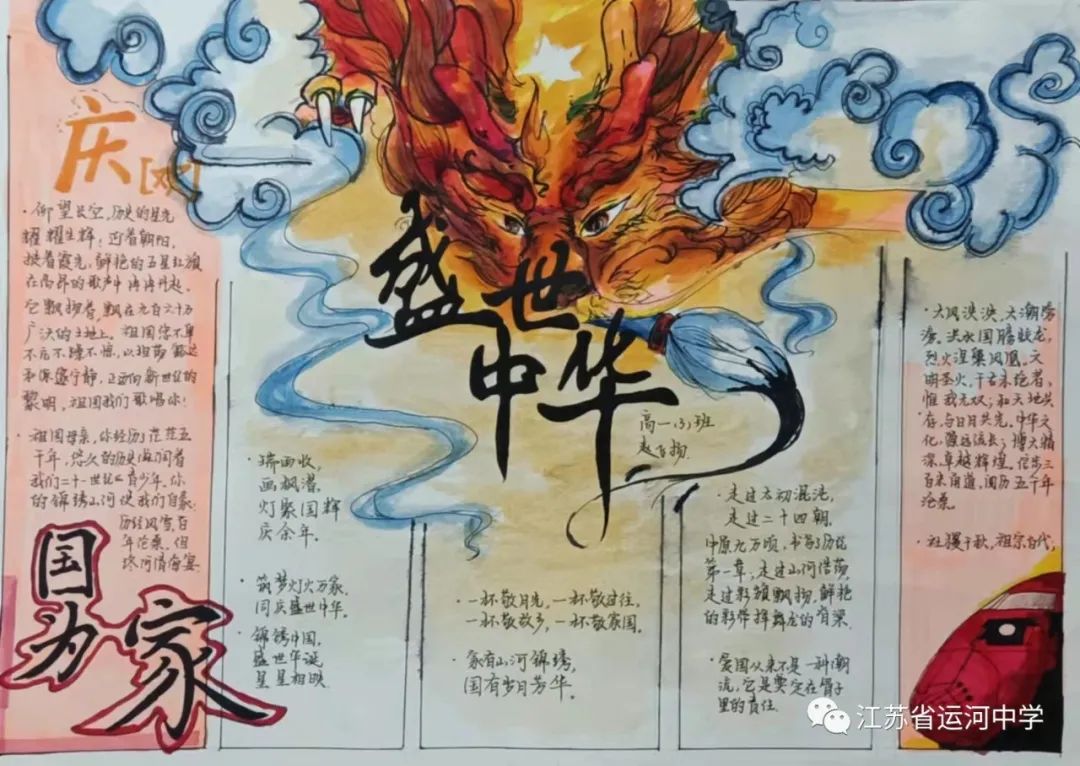 庆
仰望长空，历史的星光
耀耀生辉；迎着朝阳，
披着霞光，鲜艳的五星红旗
在高昂的歌声中冉冉升起。
它飘扬着，飘在九百六十万
广沃的土地上。祖国您不卑
不亢不躁不惊，以坦荡豁达
黎明，祖国我们歌唱你！
祖国母亲，你经历了茫茫五
千年，悠久的历史
我们二十一世纪青少年，你
的锦绣山河使我们自豪；
历经风雪，百
年沧桑，但
国为家
盛世
中华
高一(3)班
赵飞扬
瑞雨收，
画飘潜，
灯聚国辉
庆余年。
筑梦灯火万家，
同庆盛世中华。
锦绣中国，
盛世华诞
星星相映
一杯敬月光，一杯敬过往，
一杯敬故乡，一杯敬家国。
家有山河锦绣，
国有岁月芳华。
走过太初混沌，
走过二十四朝。
中原九万顷，书写了历史
第一章，走过山河浩荡，
走过彩旗飘扬，鲜艳
的彩带挥舞龙的脊梁
爱国从来不是一种潮
流，它是奠定在骨子
里的责任
大风泱泱，大潮滂
滂。洪水图腾蛟龙，
烈火涅槃凤凰。文
明圣火，千古未绝者，
惟我无双；和天地共
存，与日月共光。中华文
化，源远流长；博大精
深，卓越辉煌。信步三
百米甬道，阅历五千年
沧桑。
社稷千秋，祖宗百代，
江苏省运河中学